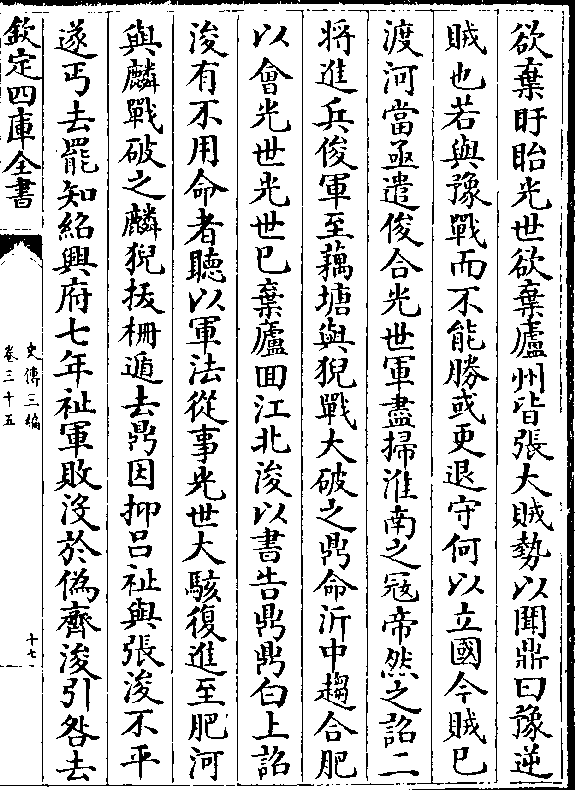 欲棄盱眙光世欲棄廬州皆張大賊勢以聞鼎曰豫逆
賊也若與豫戰而不能勝或更退守何以立國今賊已
渡河當亟遣俊合光世軍盡掃淮南之寇帝然之詔二
將進兵俊軍至藕塘與猊戰大破之鼎命沂中趨合肥
以會光世光世已棄廬回江北浚以書告鼎鼎白上詔
浚有不用命者聽以軍法從事光世大駭復進至肥河
與麟戰破之麟猊拔柵遁去鼎因抑呂祉與張浚不平
遂丐去罷知紹興府七年祉軍敗沒於偽齊浚引咎去
欽定四庫全書
史傳三編
卷三十五
十七